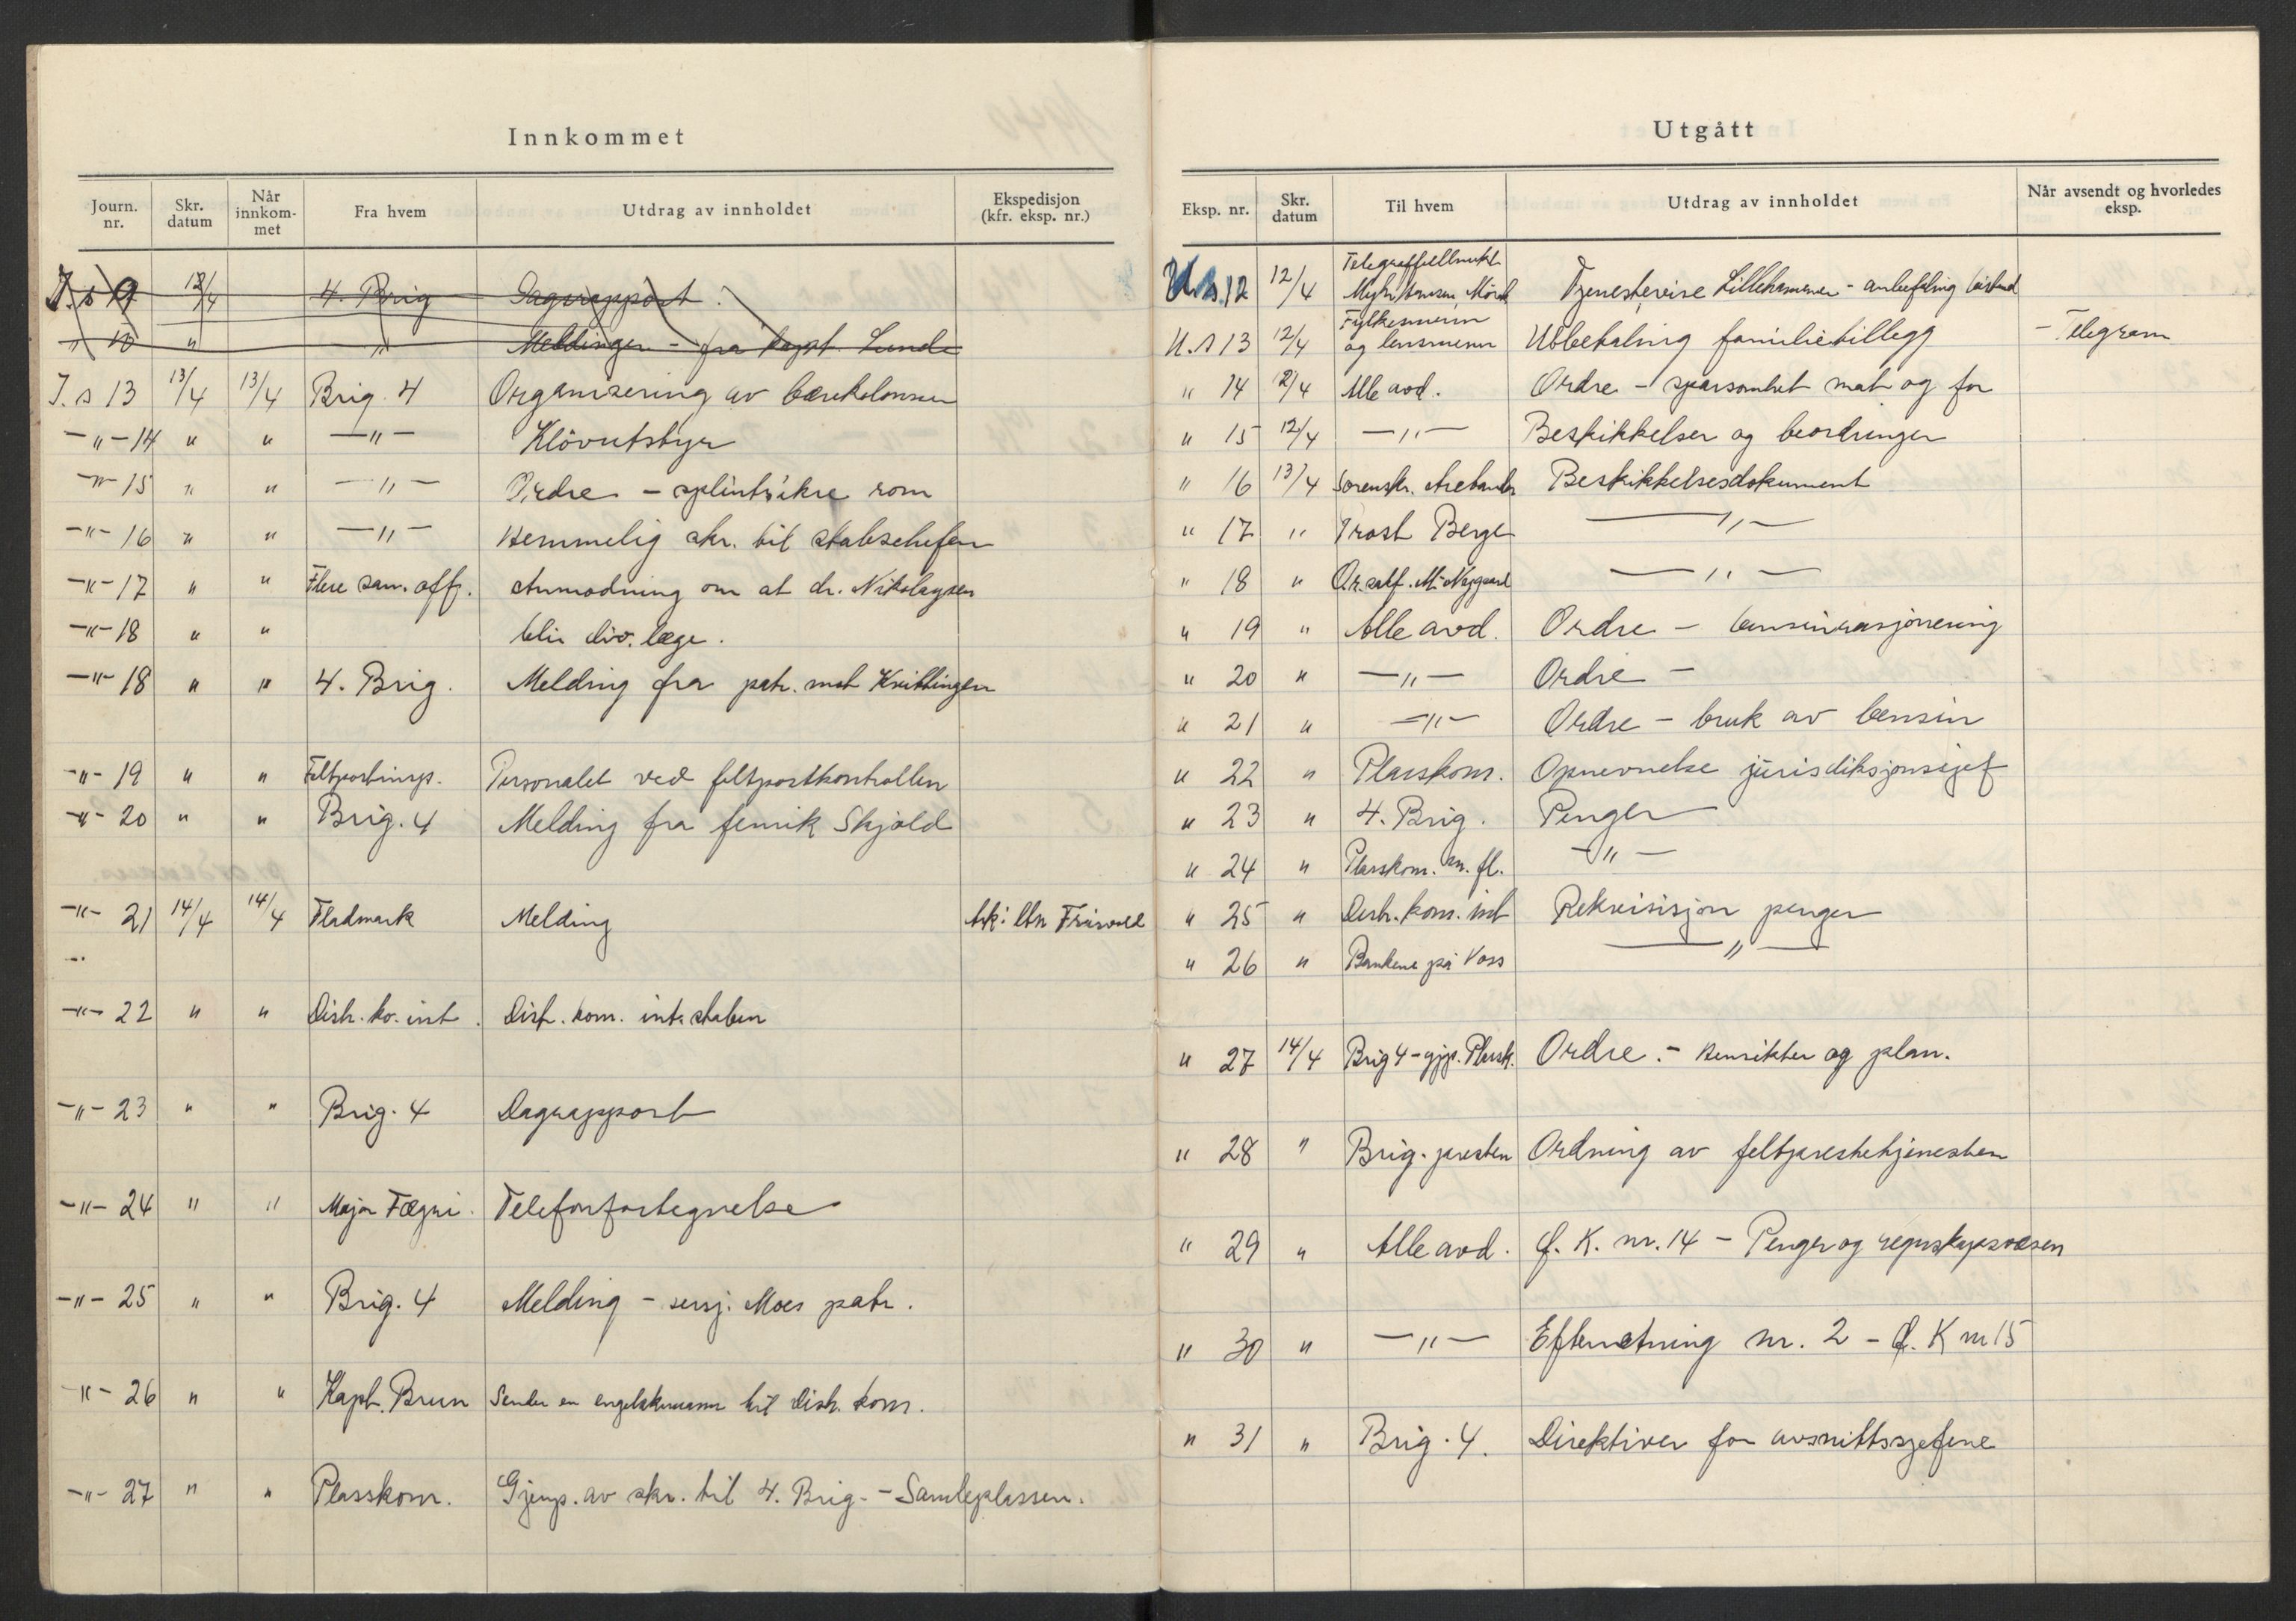 Innkommet
Journ. nr. Skr. datum Når innkom-met Fra hvem Utdrag av innholdet Ekspedisjon (kfr. eksp. nr.)
J. s 9 12/4 4. Brig Dagsrapport.
" 10 " " Meldinger - fra kapt. Lunde
J. s 13 13/4 13/4 Brig. 4 Organisering av bærekolonner
-"- 14 " " -"- Klövutstyr
-"- 15 " " -"- Ordre - splintsikre rom
-"- 16 " " -"- Hemmelig skr. til stabschefen
-"- 17 " " Flere san. off. Anmodning om at dr. Nikolaysen
-"- 18 " " blir div. læge.
-"- 18 " " 4. Brig. Melding fra patr. mot Kvittingen
-"- 19 " " Feltpostinsp. Personalet ved feltpostkontrollen
-"- 20 " " Brig. 4 Melding fra fenrik Skjold
-"- 21 14/4 14/4 Fladmark Melding Ark: ltn Frisvold
-"- 22 " " Distr. ko. int. Distr. kom. int. staben
-"- 23 " " Brig. 4 Dagrapport
-"- 24 " " Major Fægri. Telefonfortegnelse
-"- 25 " " Brig. 4 Melding - sersj. Moes patr.
-"- 26 " " Kapt. Brun Sender en engelskmann til distr. kom.
-"- 27 " " Plasskom. Gjenp. av skr. til 4. Brig. - Samleplassen.
Utgått
Eksp. nr. Skr. datum Til hvem Utdrag av innholdet Når avsendt og hvorledes eksp.
U.s. 12 12/4 Mørch Tjenestereise Lillehammer - anbefaling bistand
U.s 13 12/4 Fylkesmenn og lensmenn Utbetaling familietillegg - Telegram
" 14 12/4 Alle avd. Ordre - sparsomhet mat og for
" 15 12/4 -"- Beskikkelser og beordringer
" 16 13/4 Sorenskr. Beskikkelsesdokument
" 17 " Prost Berge -"-
" 18 " O.r.sakf. M. Nygaard -"-
" 19 " Alle avd. Ordre - bensinrasjonering
" 20 " -"- Ordre -
" 21 " -"- Ordre - bruk av bensin
" 22 " Plasskom. Opnevnelse jurisdiksjonssjef
" 23 " 4. Brig. Penger
" 24 " Plasskom. m. fl. -"-
" 25 " Distr. kom. int Rekvisisjon penger
" 26 " Bankene på Voss -"-
" 27 14/4 Brig 4 - gjp. Plassk. Ordre. - hensikter og plan.
" 28 " Brig. presten Ordning av feltprestetjenesten
" 29 " Alle avd. d. K. nr. 14 - Penger og regnskapsvæsen
" 30 " -"- Efterretning nr. 2 - d. K nr 15
" 31 " Brig. 4. Direktiver for avsnittssjefene